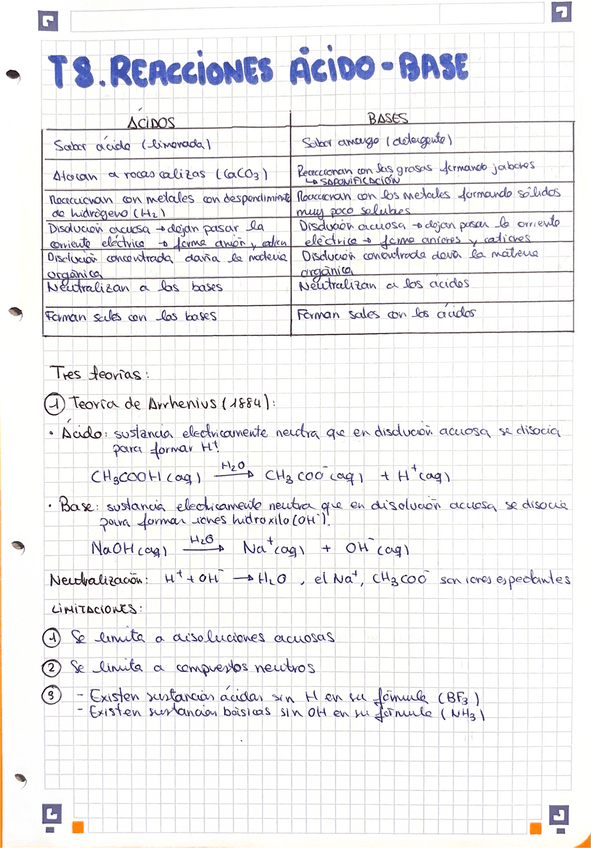 T8. REACCIONES ÁCIDO-BASE
ÁCIDOS BASES
Sabor ácido (limonada) Sabor amargo (detergente)
Atacan a rocas calizas (CaCO₃) Reaccionan con las grasas formando jabones
↳ SAPONIFICACIÓN
Reaccionan con metales con desprendimiento Reaccionan con los metales formando sólidos
de hidrógeno (H₂) muy poco solubles
Disolución acuosa → dejan pasar la Disolución acuosa → dejan pasar la corriente
corriente eléctrica → forma anión y catión eléctrica → forma aniones y cationes
Disolución concentrada daña la materia Disolución concentrada daña la materia
orgánica orgánica
Neutralizan a las bases Neutralizan a los ácidos
Forman sales con las bases Forman sales con los ácidos
Tres teorías:
① Teoría de Arrhenius (1884):
· Ácido: sustancia electricamente neutra que en disolución acuosa se disocia
para formar H⁺.
CH₃COOH (aq) —H₂O→ CH₃COO⁻ (aq) + H⁺ (aq)
· Base: sustancia electricamente neutra que en disolución acuosa se disocia
para formar iones hidroxilo (OH⁻).
NaOH (aq) —H₂O→ Na⁺ (aq) + OH⁻ (aq)
Neutralización: H⁺ + OH⁻ → H₂O, el Na⁺, CH₃COO⁻ son iones espectantes
LIMITACIONES:
① Se limita a disoluciones acuosas
② Se limita a compuestos neutros
③ - Existen sustancias ácidas sin H en su fórmula (BF₃)
- Existen sustancias básicas sin OH en su fórmula (NH₃)